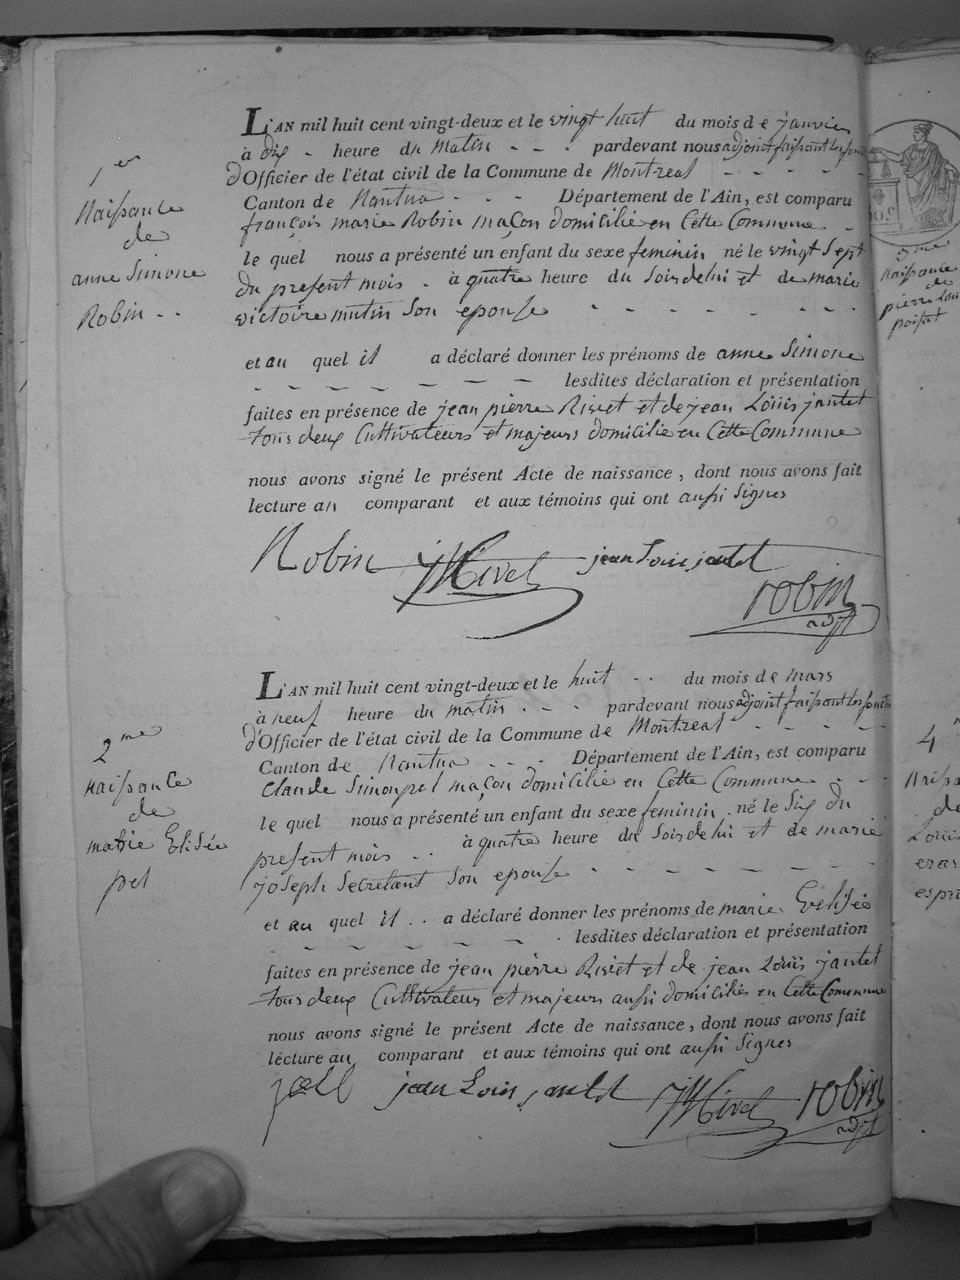 1er
Naissance
de
anne Simone
Robin
L'AN mil huit cent vingt-deux et le vingt huit du mois de janvier
à dix heure du Matin pardevant nous adjoint faisant les fonc
d'Officier de l'état civil de la Commune de Montreal
Canton de Nantua Département de l'Ain, est comparu
françois marie Robin maçon domicilié en Cette Commune
le quel nous a présenté un enfant du sexe feminin né le vingt Sept
du present mois à quatre heure du Soir de lui et de marie
victoire mutin Son epouse
et au quel il a déclaré donner les prénoms de anne Simone
lesdites déclaration et présentation
faites en présence de jean pierre Rivet et de jean Louis jantet
tous deux Cultivateurs et majeurs domicilie en Cette Commune
nous avons signé le présent Acte de naissance, dont nous avons fait
lecture au comparant et aux témoins qui ont aussi Signes
Robin JP Rivet jean Louis jantet
robin
adjt
2me
Naissance
de
marie Elisée
pel
L'AN mil huit cent vingt-deux et le huit du mois de mars
à neuf heure du matin pardevant nous adjoint faisant les fonct
d'Officier de l'état civil de la Commune de Montreal
Canton de Nantua Département de l'Ain, est comparu
Claude Simon pel maçon domicilié en Cette Commune
le quel nous a présenté un enfant du sexe feminin né le Six du
present mois à quatre heure du Soir de lui et de marie
joseph Secretant Son epouse
et au quel il a déclaré donner les prénoms de marie Elisée
lesdites déclaration et présentation
faites en présence de jean pierre Rivet et de jean Louis jantet
tous deux Cultivateurs et majeurs aussi domiciliés en Cette Commune
nous avons signé le présent Acte de naissance, dont nous avons fait
lecture au comparant et aux témoins qui ont aussi Signes
jean Louis jantet JP Rivet robin
adjt
3me
Naissance
de
pierre Loui